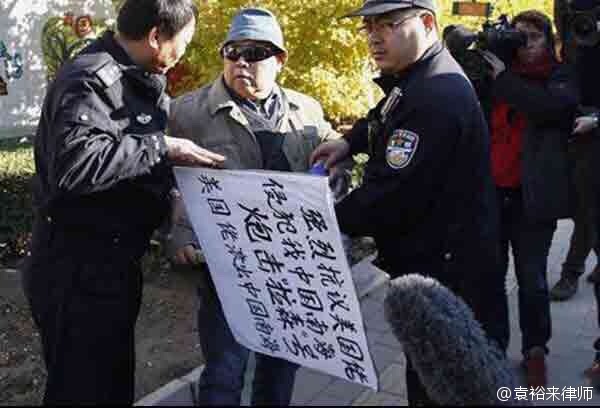 强烈抗议美国佬
侵犯我中国南海
炮击拉森号
美国佬滚出中国南海
@袁裕来律师